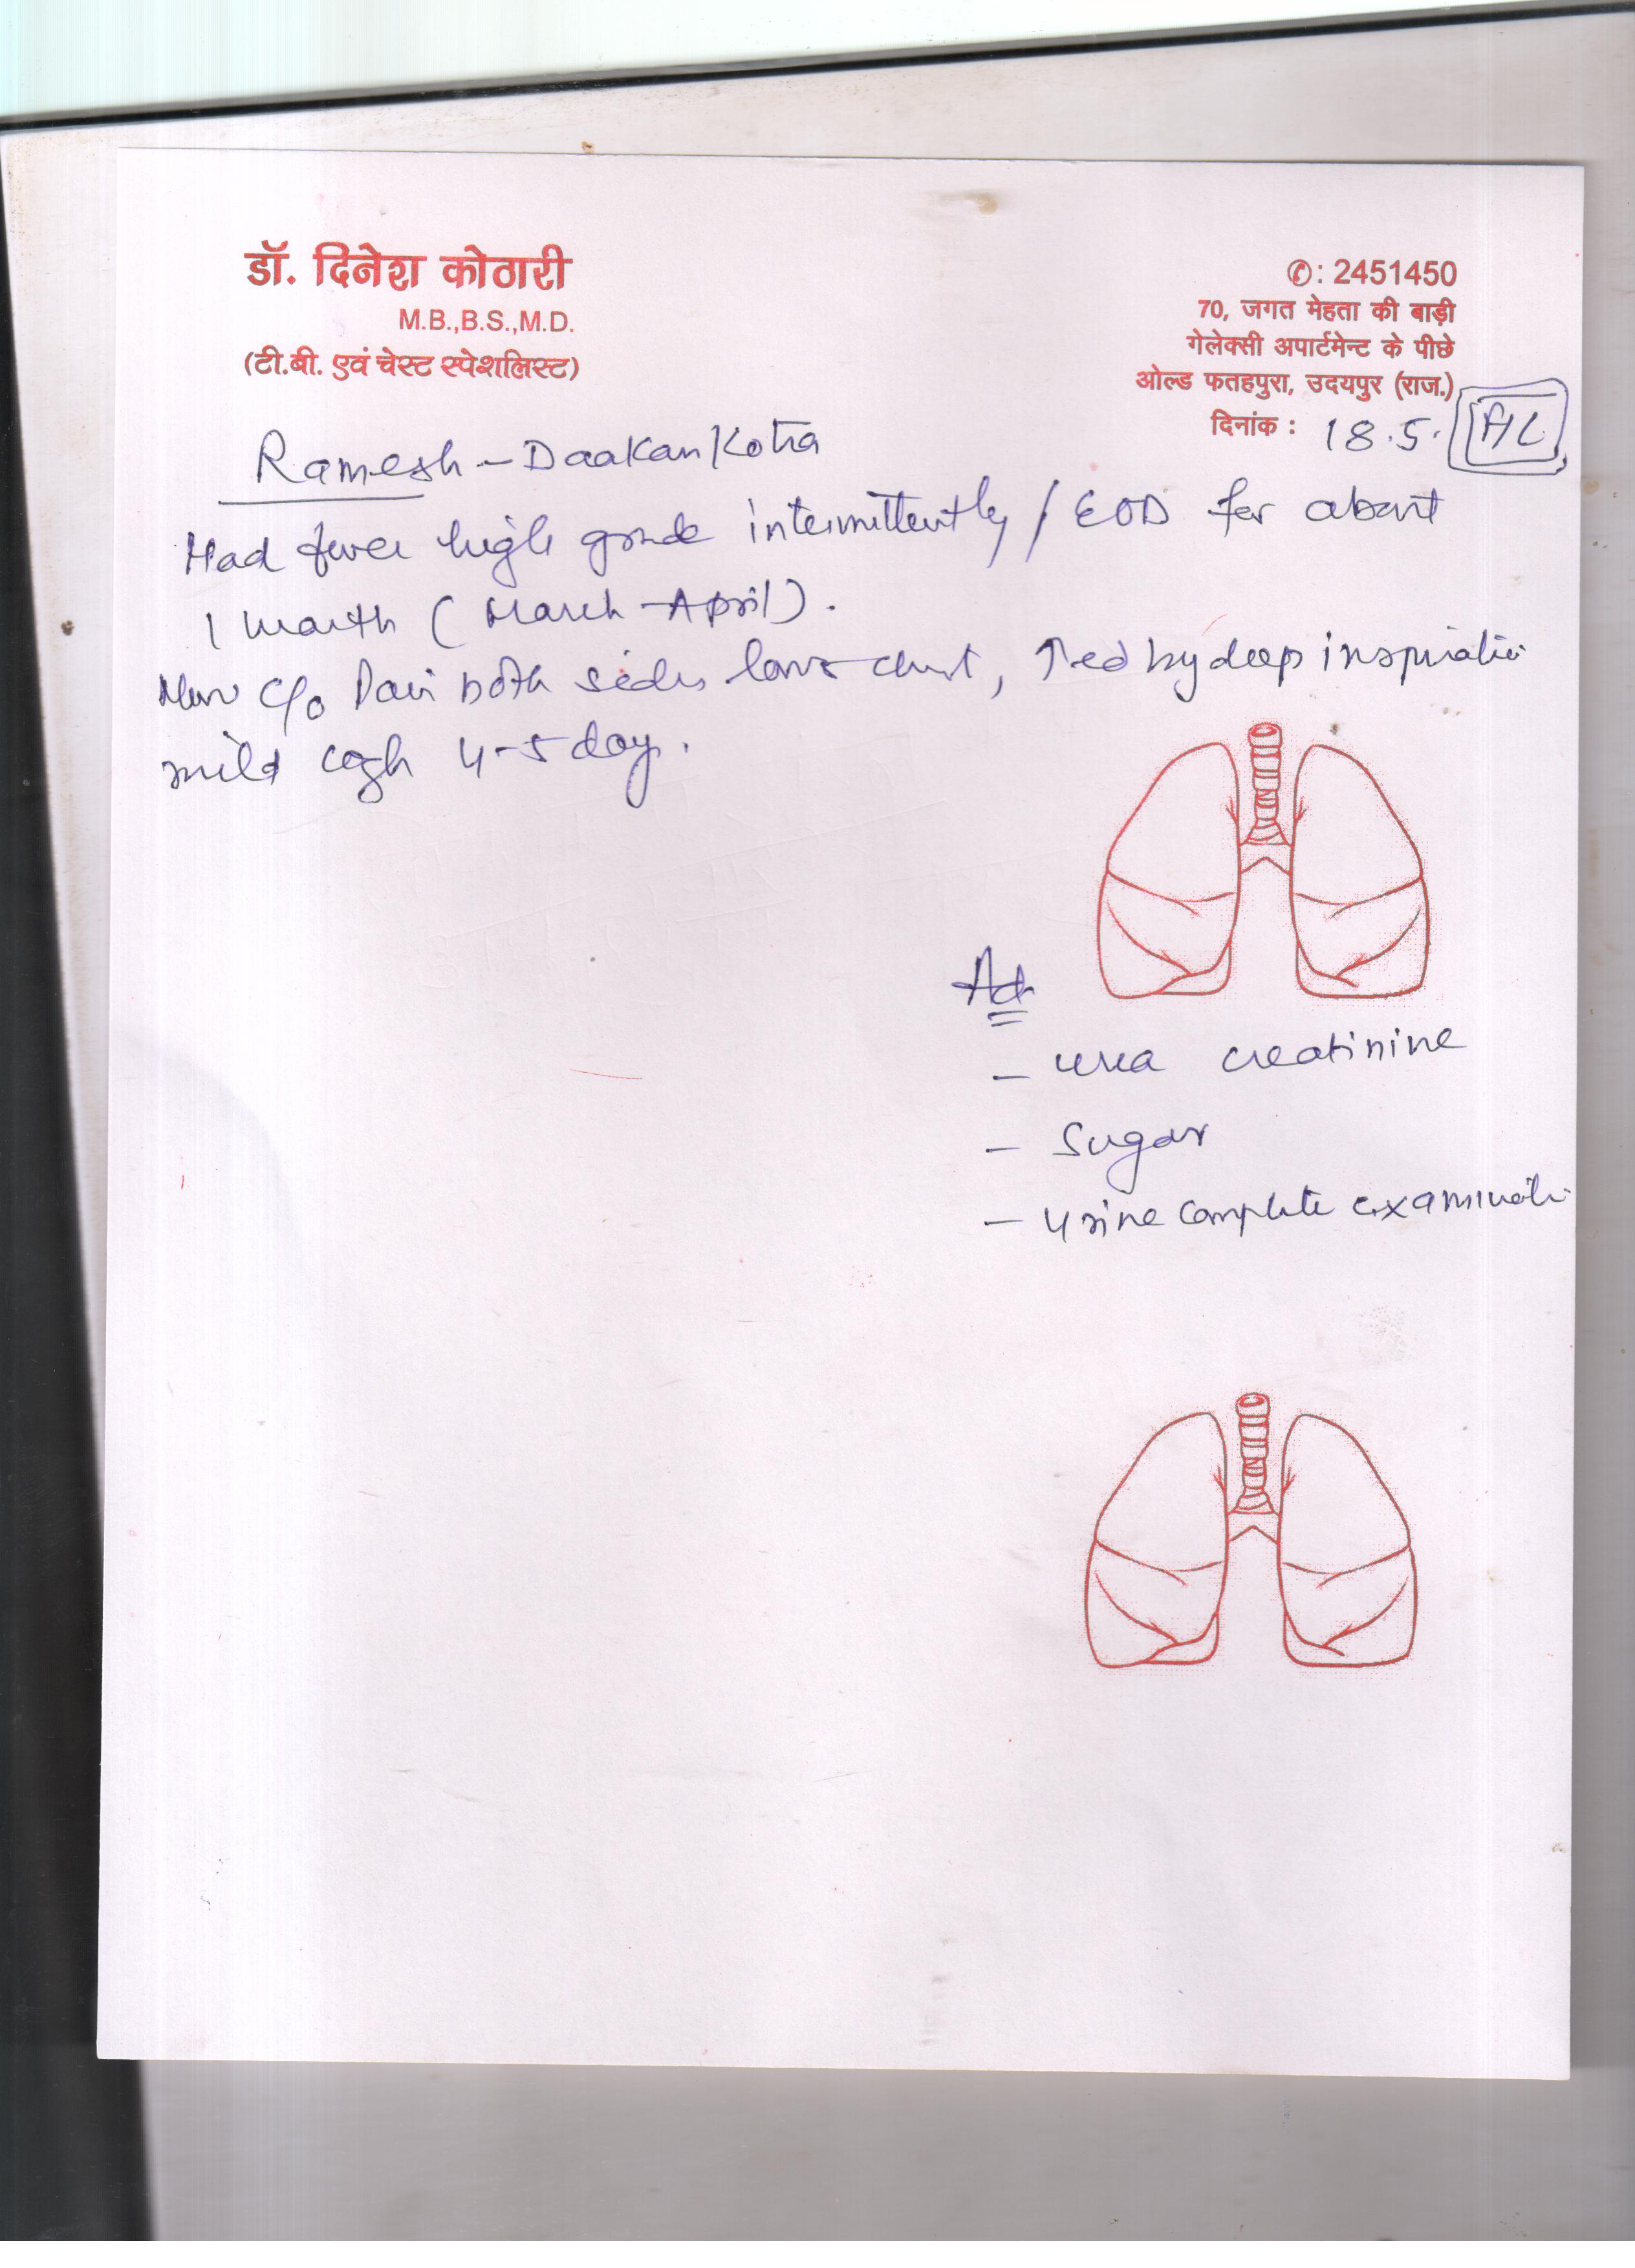 डॉ. दिनेश कोठारी
M.B.,B.S.,M.D.
(टी.बी. एवं चेस्ट स्पेशलिस्ट)
✆: 2451450
70, जगत मेहता की बाड़ी
गेलेक्सी अपार्टमेन्ट के पीछे
ओल्ड फतहपुरा, उदयपुर (राज.)
दिनांक : 18.5.
Ramesh - Daakan Kotra
Had fever high grade intermittently / EOD for about
1 month (March - April).
Now c/o Pain both sides lower chest, ↑ed by deep inspiration
mild cough 4-5 day.
Ad
- urea creatinine
- Sugar
- Urine complete examination